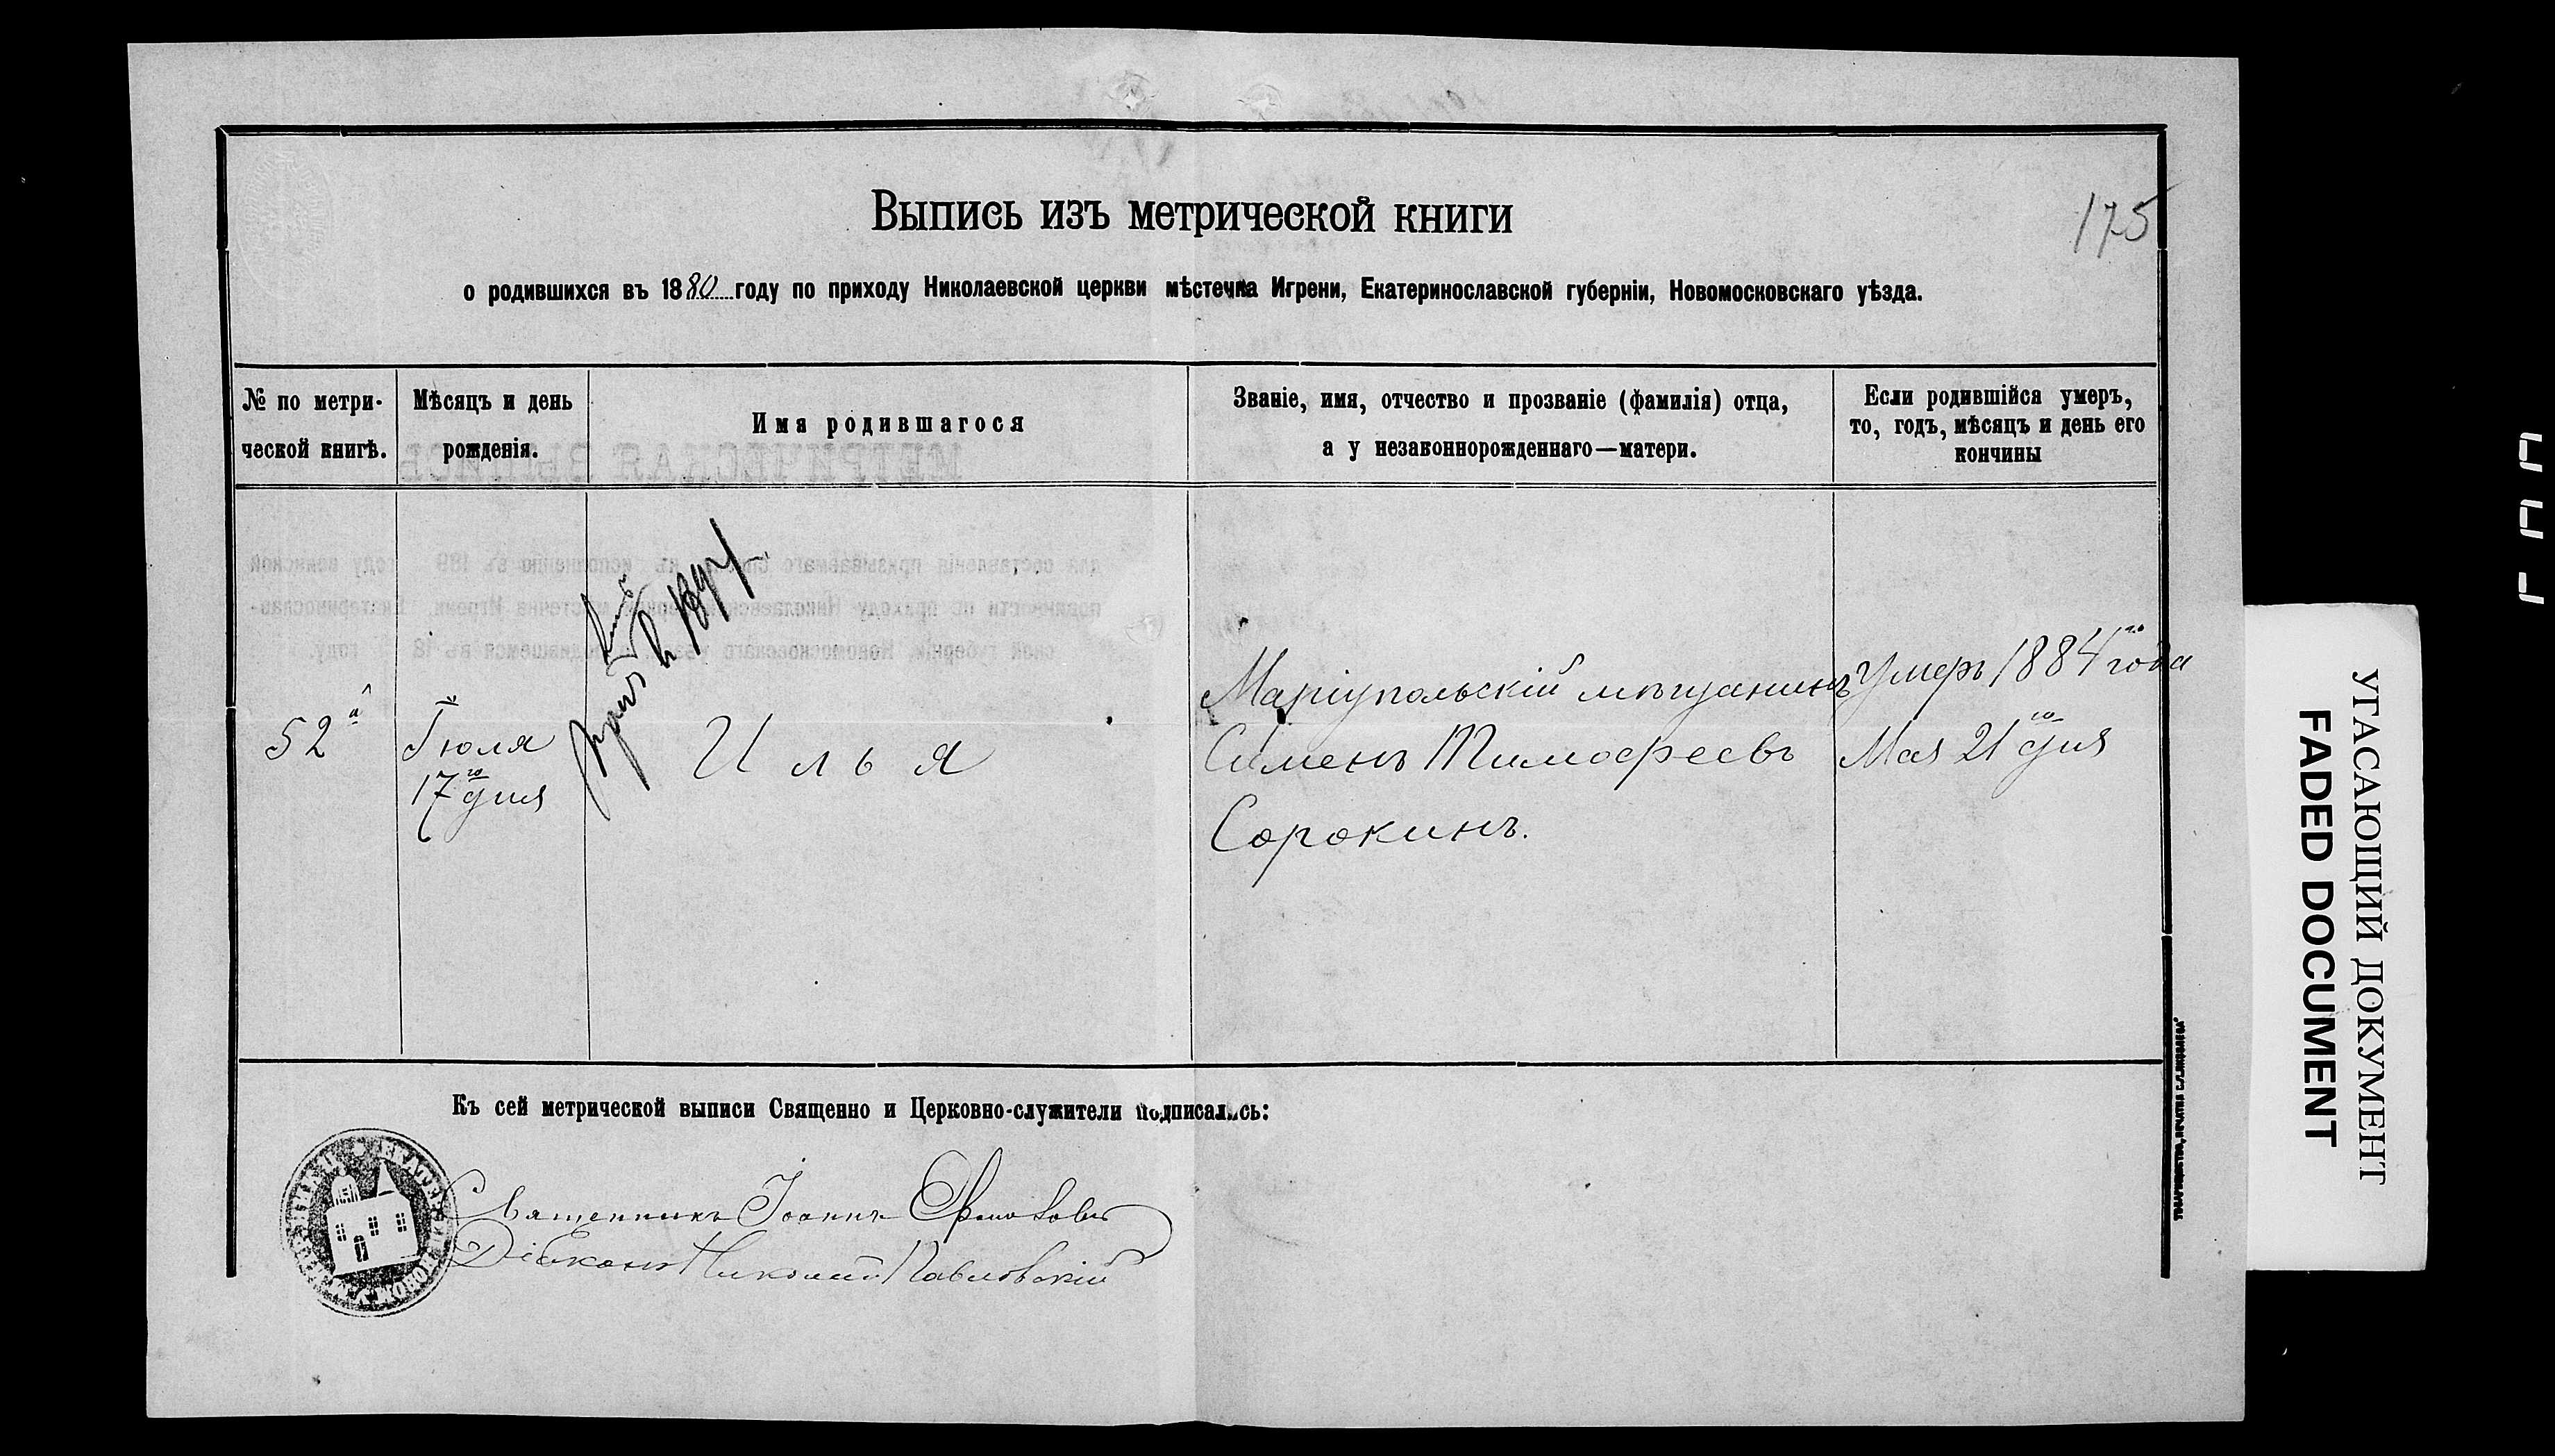 Выпись изъ метрической книги
175
о родившихся въ 1880 году по приходу Николаевской церкви мѣстечка Игрени, Екатеринославской губерніи, Новомосковскаго уѣзда.
№ по метри-
ческой книгѣ.
Мѣсяцъ и день
рожденія.
Имя родившагося
Званіе, имя, отчество и прозваніе (фамилія) отца,
а у незаконнорожденнаго—матери.
Если родившійся умеръ,
то, годъ, мѣсяцъ и день его
кончины
52й
Іюля
17го дня
Илья
Маріупольскій мѣщанинъ
Сименъ Тимофеевъ
Сорокинъ.
Умеръ 1884го года
Мая 21го дня
Къ сей метрической выписи Священно и Церковно-служители подписались:
Священникъ Іоаннъ
Діаконъ Николай Павловскій
УГАСАЮЩИЙ ДОКУМЕНТ
FADED DOCUMENT